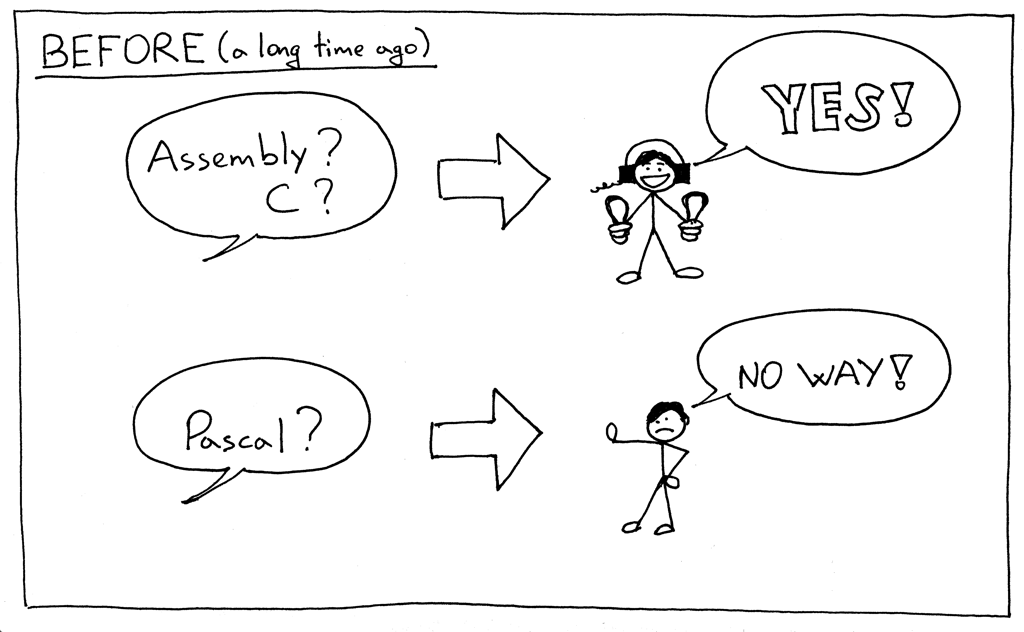 BEFORE (a long time ago)
Assembly?
C?
YES!
Pascal?
NO WAY!